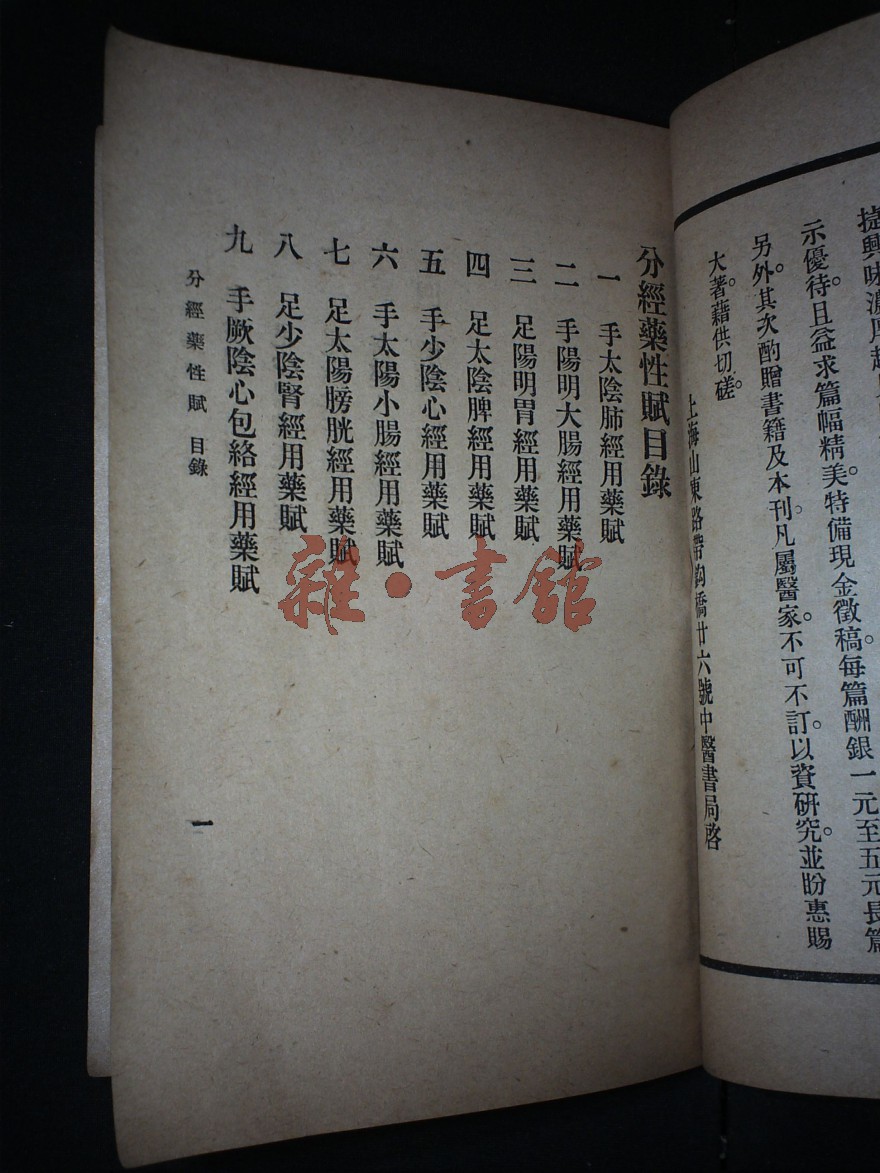 示優待。且益求篇幅精美。特備現金徵稿。每篇酬銀一元至五元長篇
另外。其次酌贈書籍及本刊。凡屬醫家。不可不訂。以資研究。並盼惠賜
大著。藉供切磋。
上海山東路帶鈎橋廿六號中醫書局啓
分經藥性賦目錄
一 手太陰肺經用藥賦
二 手陽明大腸經用藥賦
三 足陽明胃經用藥賦
四 足太陰脾經用藥賦
五 手少陰心經用藥賦
六 手太陽小腸經用藥賦
七 足太陽膀胱經用藥賦
八 足少陰腎經用藥賦
九 手厥陰心包絡經用藥賦
分經藥性賦 目錄
一
雜·書館